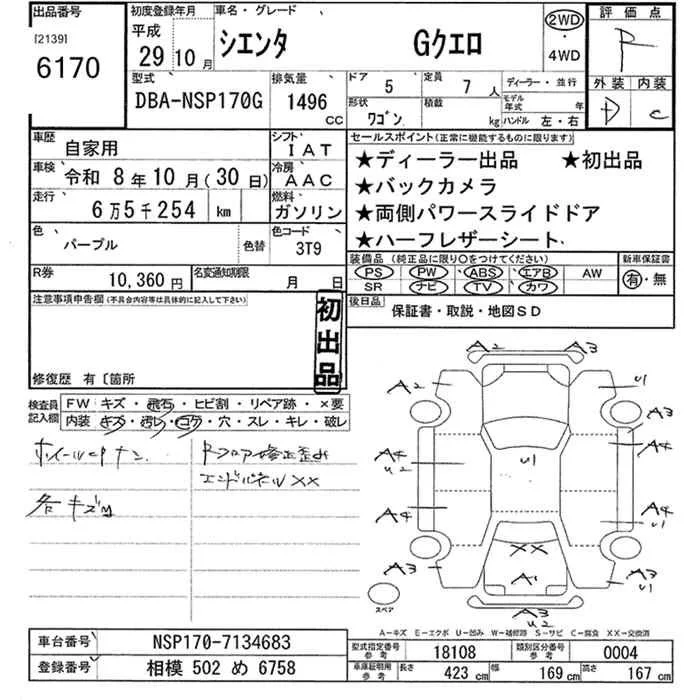 出品番号 初度登録年月 車名・グレード 評価点
[2139] 平成
6170 29年 10月 シエンタ Gクエロ 2WD・4WD R
型式 排気量 ドア 定員 ディーラー・並行 外装 内装
DBA-NSP170G 1496cc 5 7人 モデル年式 年 D C
形状 ワゴン 積載 kg ハンドル 左・右
車歴 自家用 シフト IAT セールスポイント(正常に機能するものに限ります)
★ディーラー出品 ★初出品
車検 令和 8年10月(30日) 冷房 AAC
★バックカメラ
走行 6万5千254 km 燃料 ガソリン
★両側パワースライドドア
色 パープル 色替 色コード 3T9
★ハーフレザーシート
装備品(純正品に限り○をつけてください) 新車保証書
PS PW ABS エアB AW 有・無
SR ナビ TV カワ
R券 10,360円 名変通知期限 月 日
後日品 保証書・取説・地図SD
注意事項申告欄(不具合内容等は具体的に記入して下さい)
初出品
修復歴 有〔箇所
検査員記入欄 FW キズ・飛石・ヒビ割・リペア跡・×要
内装 キズ・汚レ・コゲ・穴・スレ・キレ・破レ
各キズU
Rフロア修正歪み
XX
A2 A3
A2 U1
A3
A4 U2 U1 A4
A4 A4 U1
XX
A3 A1 A3 U1
A3 U2
スペア
A-キズ E-エクボ U-凹み W-補修跡 S-サビ C-腐食 XX-交換済
車台番号 NSP170-7134683
型式指定番号参考 18108 類別区分番号参考 0004
登録番号 相模 502 め 6758
車庫証明用参考 長さ 423cm 幅 169cm 高さ 167cm